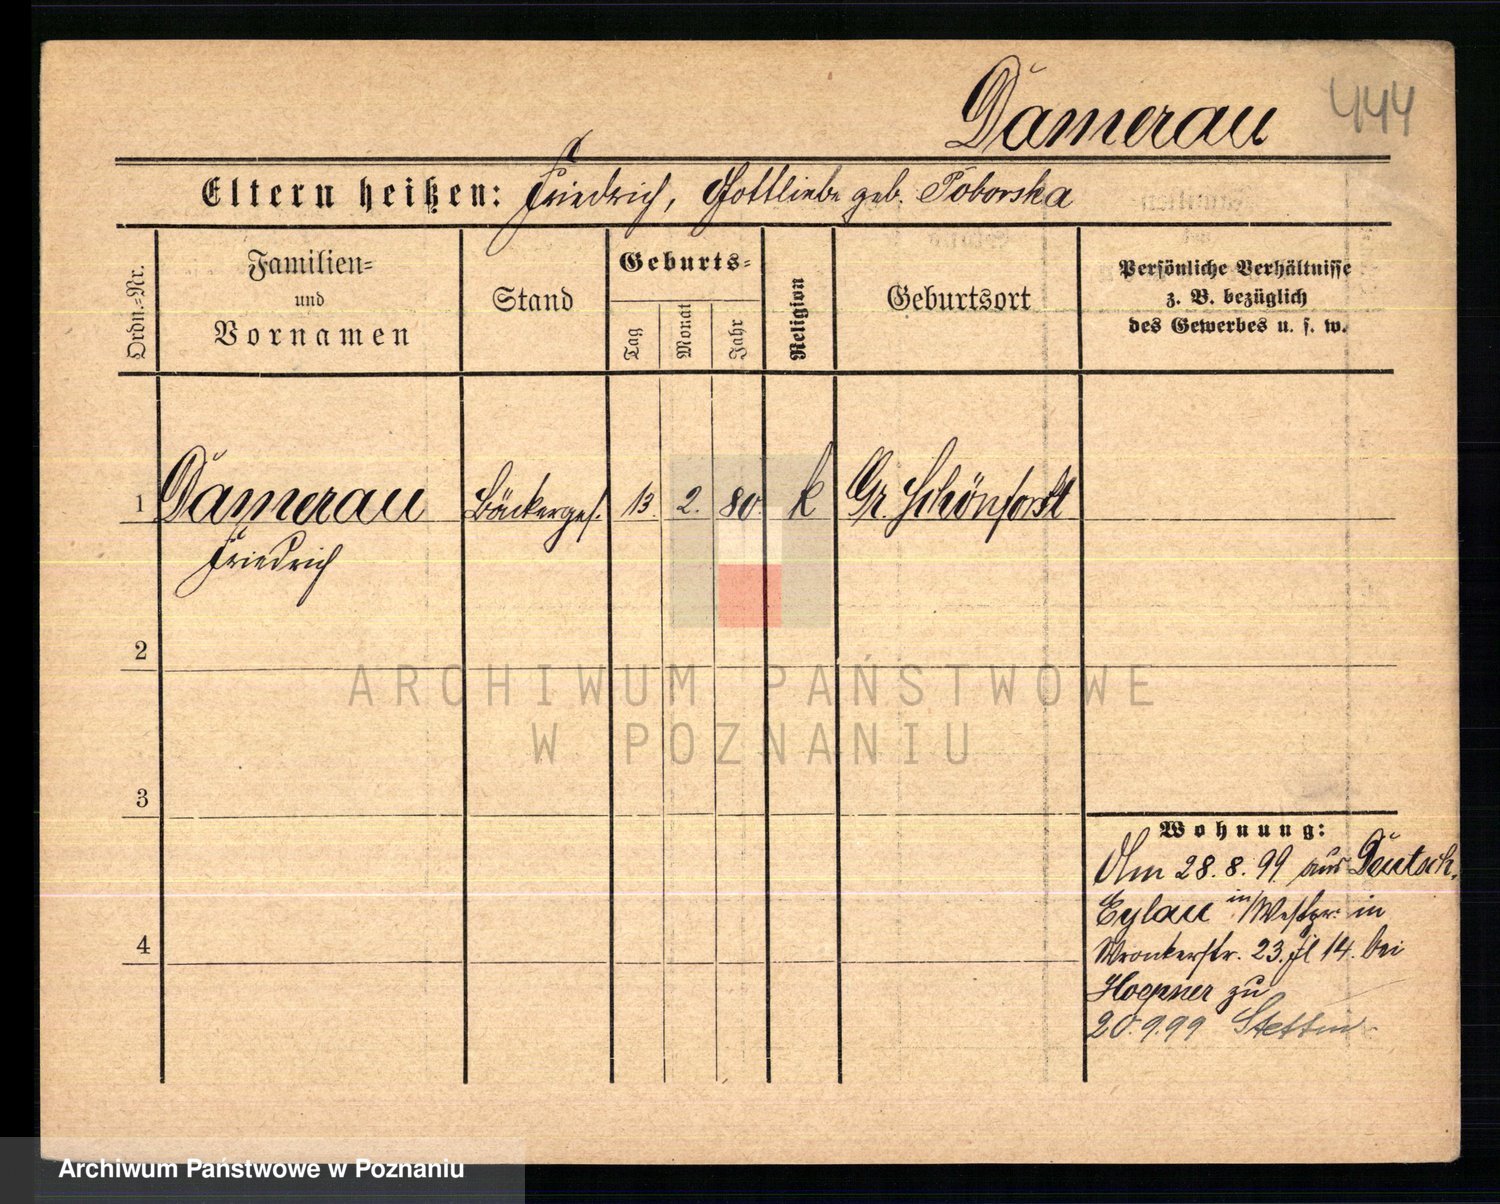 Damerau 444
Eltern heißen: Friedrich, Gottliebe geb. Poborska
Ordn.-Nr.
Familien-
und
Vornamen
Stand
Geburts-
Tag
Monat
Jahr
Religion
Geburtsort
Persönliche Verhältnisse
z. B. bezüglich
des Gewerbes u. s. w.
1 Damerau Bäckerges. 13. 2. 80. k Gr. Schönforst
Friedrich
2
3
4
Wohnung:
Am 28. 8. 99 aus Deutsch.
Eylau in/Westpr. in
Wronkerstr. 23. II 14. bei
Hoepner zu
20.9.99 Stettin
ARCHIWUM PAŃSTWOWE
W POZNANIU
Archiwum Państwowe w Poznaniu